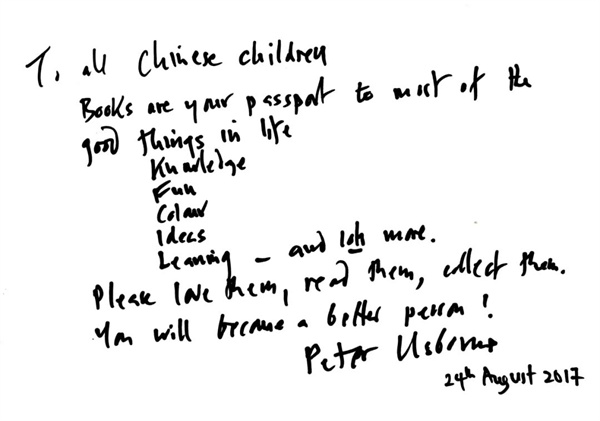 To all Chinese children
Books are your passport to most of the
good things in life
Knowledge
Fun
Colour
Ideas
Learning – and lots more.
Please love them, read them, collect them.
You will become a better person!
Peter Usborne
24th August 2017